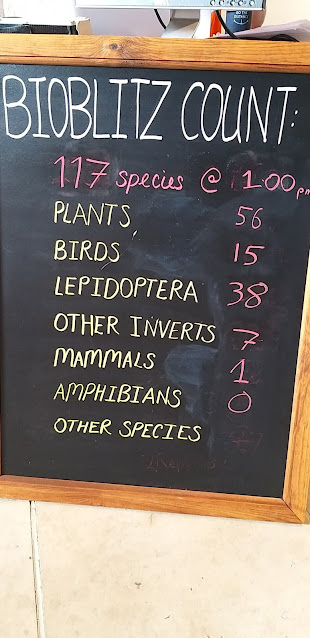 BIOBLITZ COUNT:
117 species @ 1:00 pm
PLANTS 56
BIRDS 15
LEPIDOPTERA 38
OTHER INVERTS 7
MAMMALS 1
AMPHIBIANS 0
OTHER SPECIES